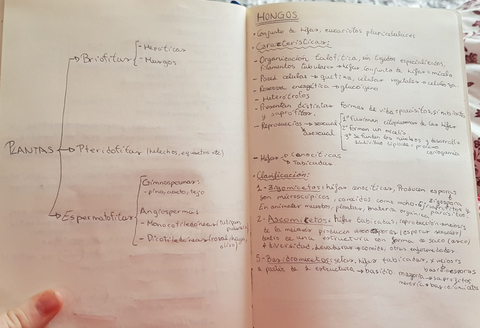 - Hepáticas
→ Briofitas
- Musgos
PLANTAS → Pteridofitas (helechos, equisetos etc)
Gimnospermas:
- pino, abeto, tejo
→ Espermatofitas
Angiospermas
- Monocotiledóneas (tulipán,
- Dicotiledóneas (rosa,
olivo)
HONGOS
· Conjunto de hifas, eucariotas pluricelulares
· Características:
- Organización talofítica, sin tejidos especializados,
filamentos tubulares → hifas conjunto de hifas = micelio
- Pared celular → quitina, celular vegetal → celulosa
- Reserva energética → glucógeno
- Heterótrofos
- Presentan distintas formas de vida,
y saprófitas.
- Reproducción → sexual
asexual
1º Fusionan citoplasmas de las hifas
2º Forman un micelio
3º Se funden los núcleos y desarrolla
- Hifas → Cenocíticas
→ Tabicadas
· Clasificación:
1- Zigomicetos: hifas cenocíticas, Producen esporas
son microscópicos, conocidos como moho
En animales muertos, plantas, materia orgánica
2- Ascomicetos: hifas tabicadas, reproducción asexual
de la mayoría producen ascosporas (esporas sexuales)
dentro de una estructura con forma de saco (asco)
+ diversidad, levaduras → comida, otras enfermedades
3- Basidiomicetos: setas, hifas tabicadas,
a partir de la estructura → basidio
mayoría → saprófitos